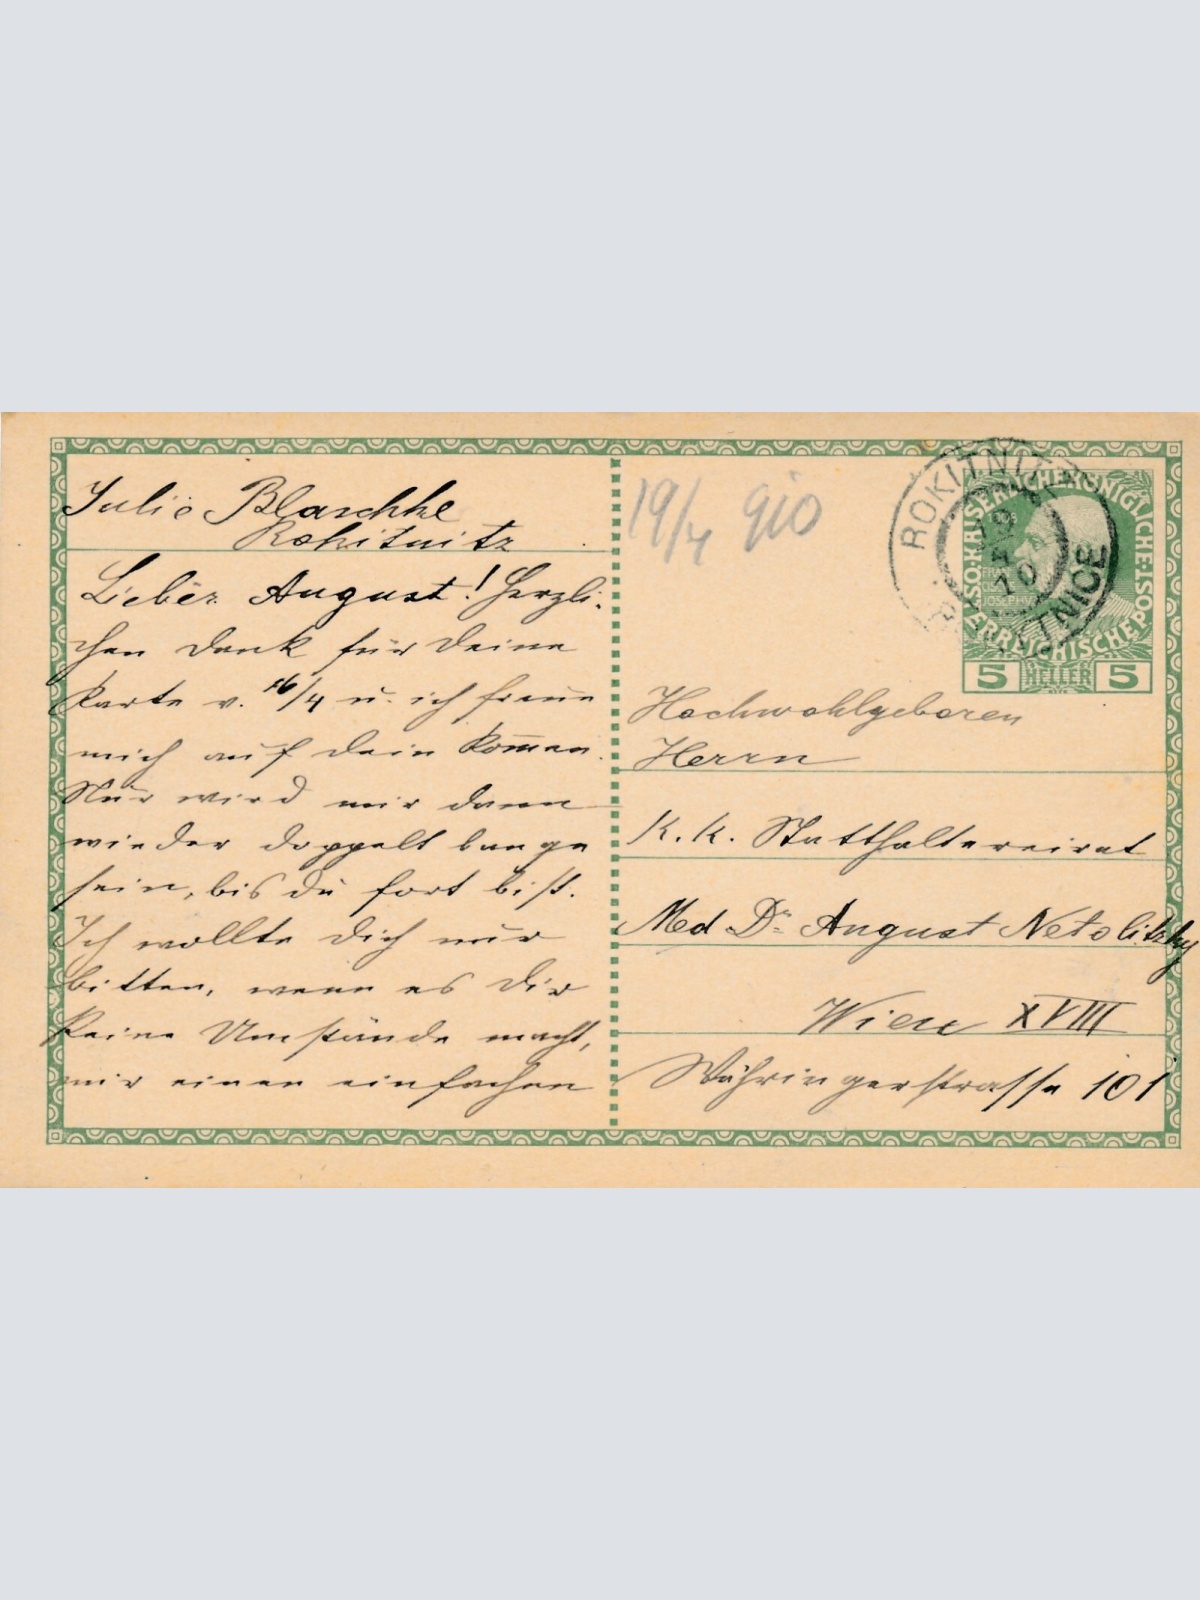 Julie Blaschke
Rokitnitz
Lieber August! Herzli-
chen Dank für Deine
Karte v. 16/4 u. ich freue
mich auf Dein Kom̅en.
Nur wird mir dann
wieder doppelt bange
sein, bis Du fort bist.
Ich wollte Dich nur
bitten, wenn es Dir
keine Umstände macht,
mir einen einfachen
19/4 910
ROKITNITZ
ROKITNICE
10
KAISERLICHE KÖNIGLICHE
ÖSTERREICHISCHE POST
5 HELLER 5
Hochwohlgeboren
Herrn
K. K. Statthaltereirat
Med Dr. August Netolitzky
Wien XVIII
Währingerstrasse 101